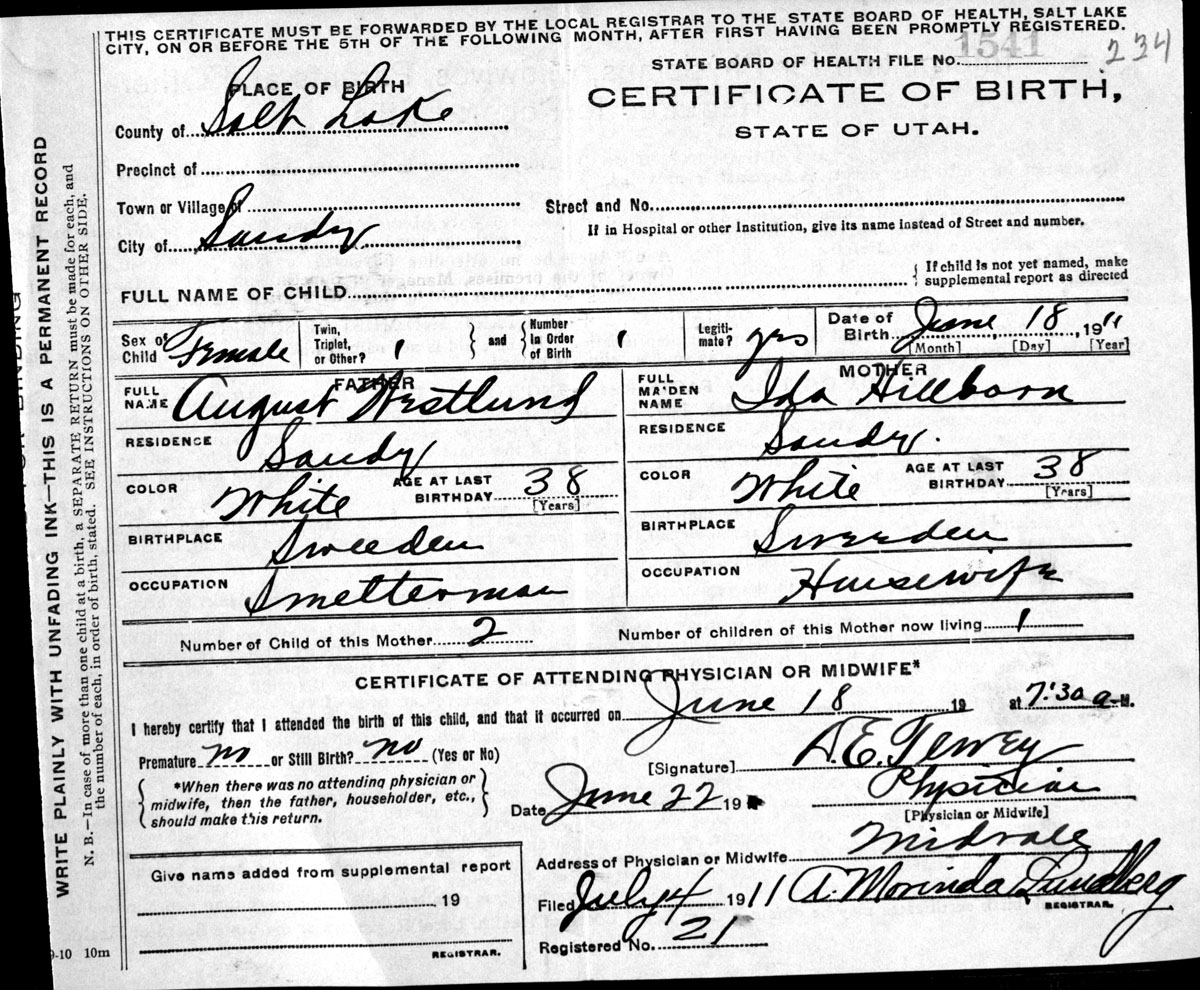 THIS CERTIFICATE MUST BE FORWARDED BY THE LOCAL REGISTRAR TO THE STATE BOARD OF HEALTH, SALT LAKE
CITY, ON OR BEFORE THE 5TH OF THE FOLLOWING MONTH, AFTER FIRST HAVING BEEN PROMPTLY REGISTERED.
1541 234
STATE BOARD OF HEALTH FILE No.
PLACE OF BIRTH
CERTIFICATE OF BIRTH,
STATE OF UTAH.
County of Salt Lake
Precinct of
Town or Village of
Street and No.
City of Sandy
If in Hospital or other Institution, give its name instead of Street and number.
FULL NAME OF CHILD
{ If child is not yet named, make
supplemental report as directed
Sex of Child Female
Twin, Triplet, or Other? 1
} and { Number in Order of Birth 1
Legitimate? yes
Date of Birth June 18, 1911
[Month] [Day] [Year]
FATHER
FULL NAME August Westlund
RESIDENCE Sandy
COLOR White AGE AT LAST BIRTHDAY 38
[Years]
BIRTHPLACE Sweeden
OCCUPATION Smelterman
MOTHER
FULL MAIDEN NAME Ida Hillborn
RESIDENCE Sandy.
COLOR White AGE AT LAST BIRTHDAY 38
[Years]
BIRTHPLACE Sweeden
OCCUPATION Housewife
Number of Child of this Mother 2 Number of children of this Mother now living 1
CERTIFICATE OF ATTENDING PHYSICIAN OR MIDWIFE*
I hereby certify that I attended the birth of this child, and that it occurred on June 18 19 at 7:30 a M.
Premature no or Still Birth? no (Yes or No)
[Signature] A.E. Tewey
{ *When there was no attending physician or
midwife, then the father, householder, etc.,
should make this return. }
Date June 22 191
Physician
[Physician or Midwife]
Address of Physician or Midwife Midvale
Give name added from supplemental report
19
REGISTRAR.
Filed July 4 1911 A. Morinda Lundberg
REGISTRAR.
Registered No. 21
9-10 10m
BINDING
WRITE PLAINLY WITH UNFADING INK—THIS IS A PERMANENT RECORD
N. B.—In case of more than one child at a birth, a SEPARATE RETURN must be made for each, and
the number of each, in order of birth, stated. SEE INSTRUCTIONS ON OTHER SIDE.